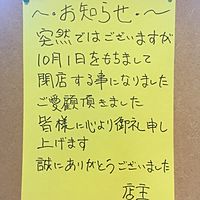 ～・お知らせ・～
突然ではございますが
10月1日をもちまして
閉店する事になりました
ご愛顧頂きました
皆様に心より御礼申し
上げます
誠にありがとうございました
店主